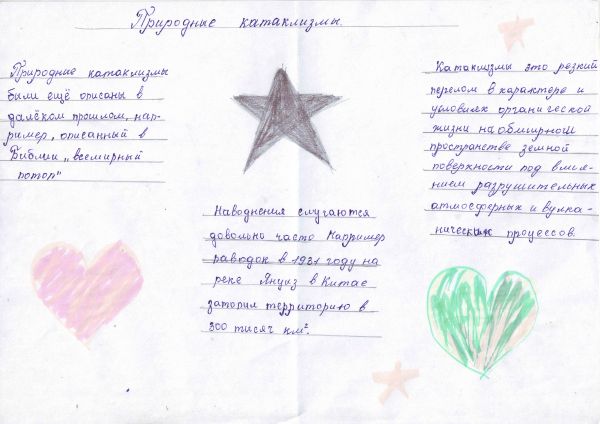 Природные катаклизмы.
Природные катаклизмы
были ещё описаны в
далёком прошлом, нап-
ример, описанный в
Библии „всемирный
потоп"
Наводнения случаются
довольно часто Например
паводок в 1931 году на
реке Янцзы в Китае
затопил территорию в
300 тисяч км².
Катаклизмы это резкий
перелом в характере и
условиях органической
жизни на обширной
пространстве земной
поверхности под влия-
нием разрушительных
атмосферных и вулка-
нических процессов